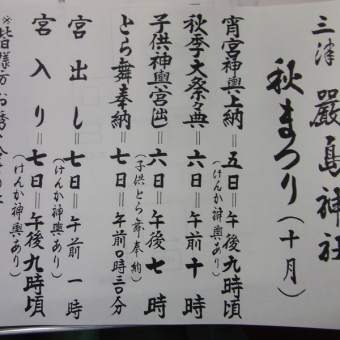 三津 嚴島神社
秋まつり(十月)
宵宮神輿上納=五日=午後九時頃
(けんか神輿あり)
秋季大祭典=六日=午前十時
子供神輿宮出=六日=午後七時
(子供とら舞奉納)
とら舞奉納=七日=午前0時三〇分
宮出し=七日=午前一時
(けんか神輿あり)
宮入り=七日=午後九時頃
(けんか神輿あり)
※皆様方お誘い